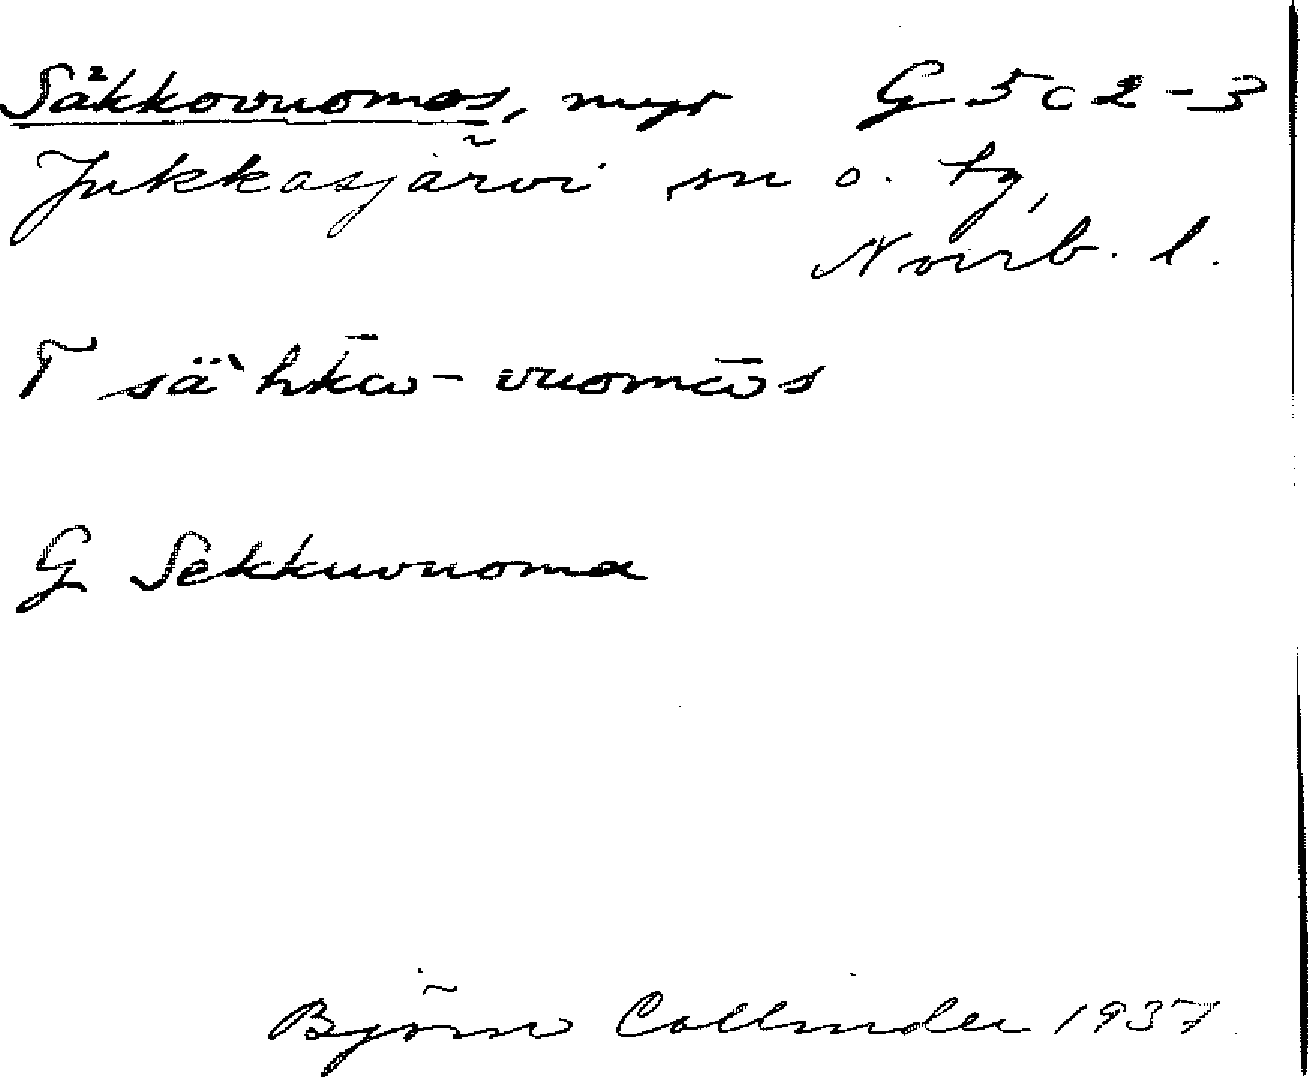 Säkkovuomos, myr G 5 c 2-3
Jukkasjärvi sn o. tg,
Norrb. l.
T sä`hkω̄-vuomω̄s
G Sekkuvuoma
Björn Collinder 1937